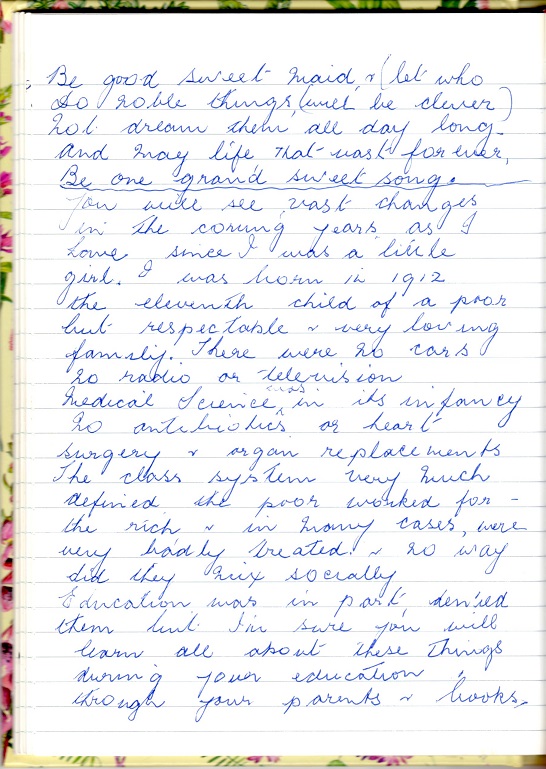 Be good sweet maid & (let who
Do noble things (will be clever)
Not dream them all day long.
And may life that vast for ever,
Be one grand sweet song.
You will see vast changes
in the coming years as I
have since I was a little
girl. I was born in 1912
the eleventh child of a poor
but respectable & very loving
family. There were no cars
no radio or television
Medical Science was in its infancy
no antibiotics or heart
surgery & organ replacements
The class system very much
defined the poor worked for -
the rich & in many cases, were
very badly treated. & no way
did they mix socially
Education was in part denied
them but I'm sure you will
learn all about these things
during your education,
through your parents & books.